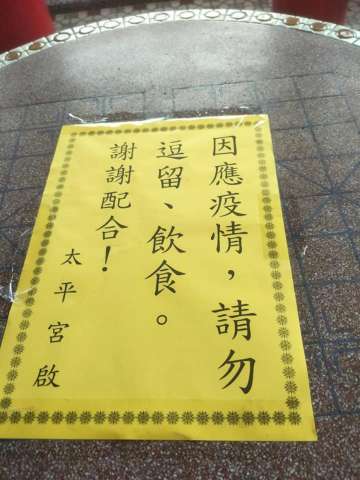 因應疫情，請勿
逗留、飲食。
謝謝配合！
太平宮啟